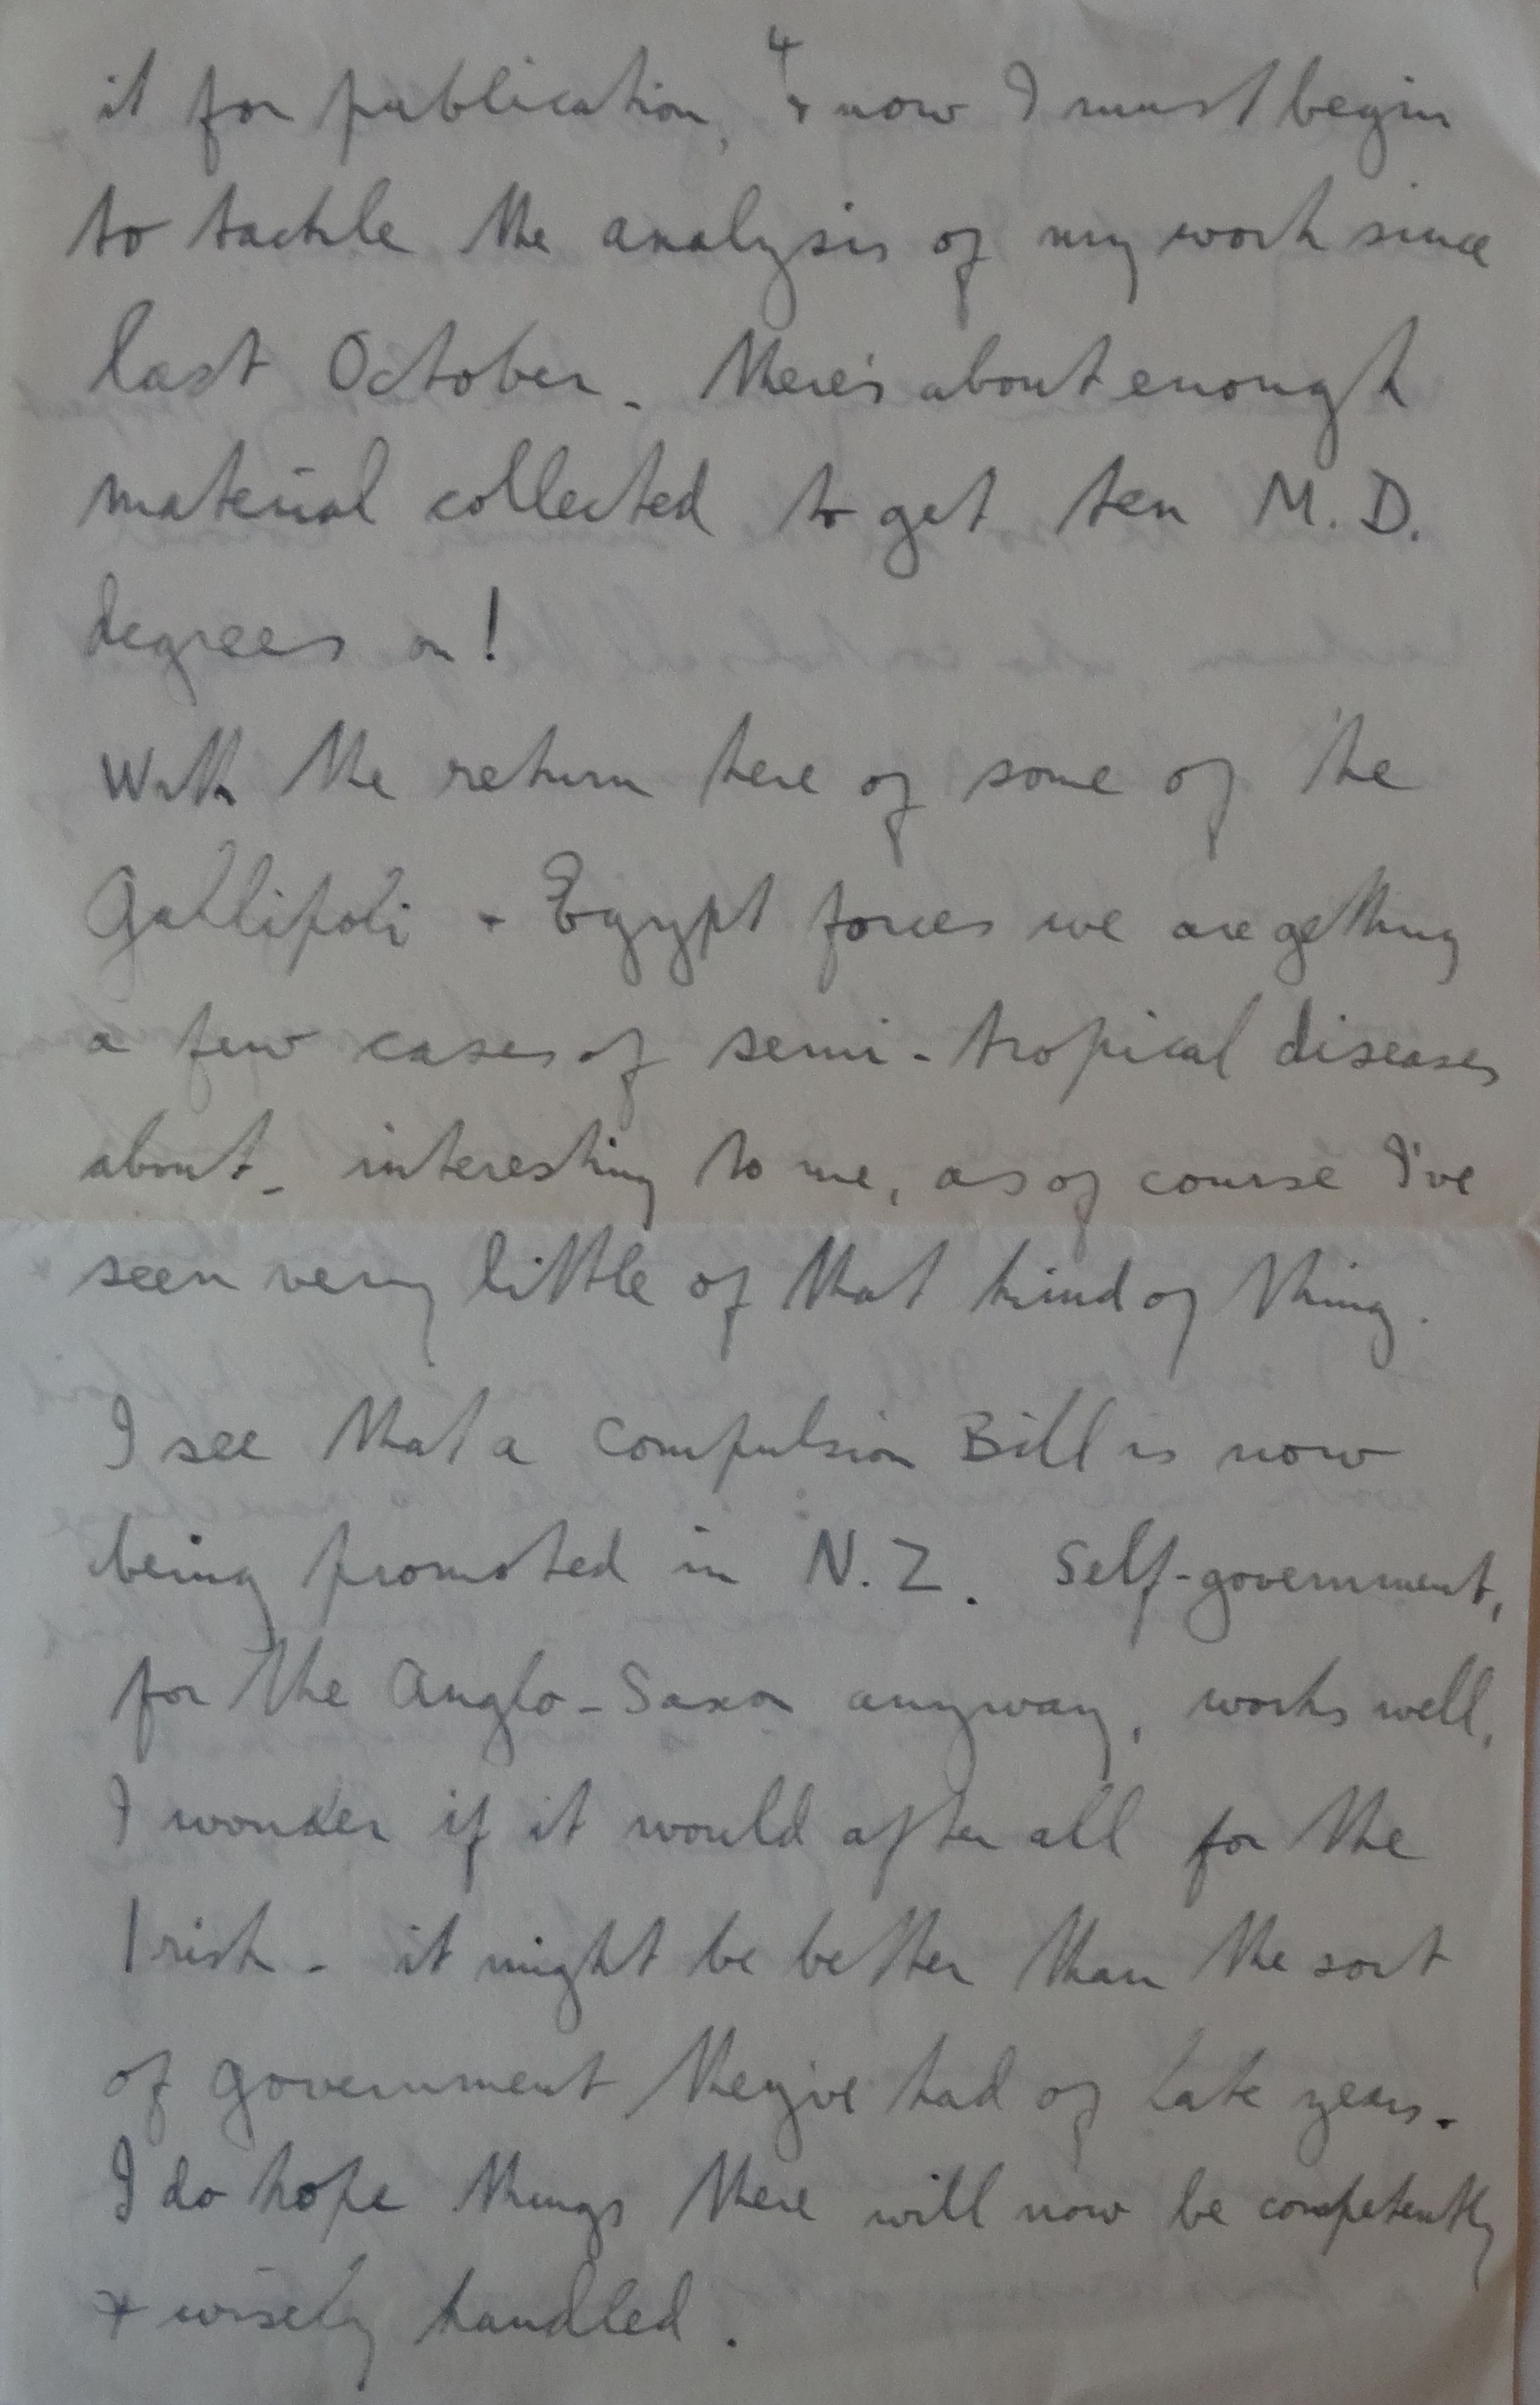 4
it for publication, & now I must begin
to tackle the analysis of my work since
last October. There's about enough
material collected to get ten M.D.
degrees on!
With the return here of some of the
Gallipoli & Egypt forces we are getting
a few cases of semi-tropical diseases
about - interesting to me, as of course I've
seen very little of that kind of thing.
I see that a Compulsion Bill is now
being promoted in N.Z. Self-government,
for the Anglo-Saxon anyway, works well.
I wonder if it would after all for the
Irish - it might be better than the sort
of government they've had of late years.
I do hope things there will now be competently
& wisely handled.